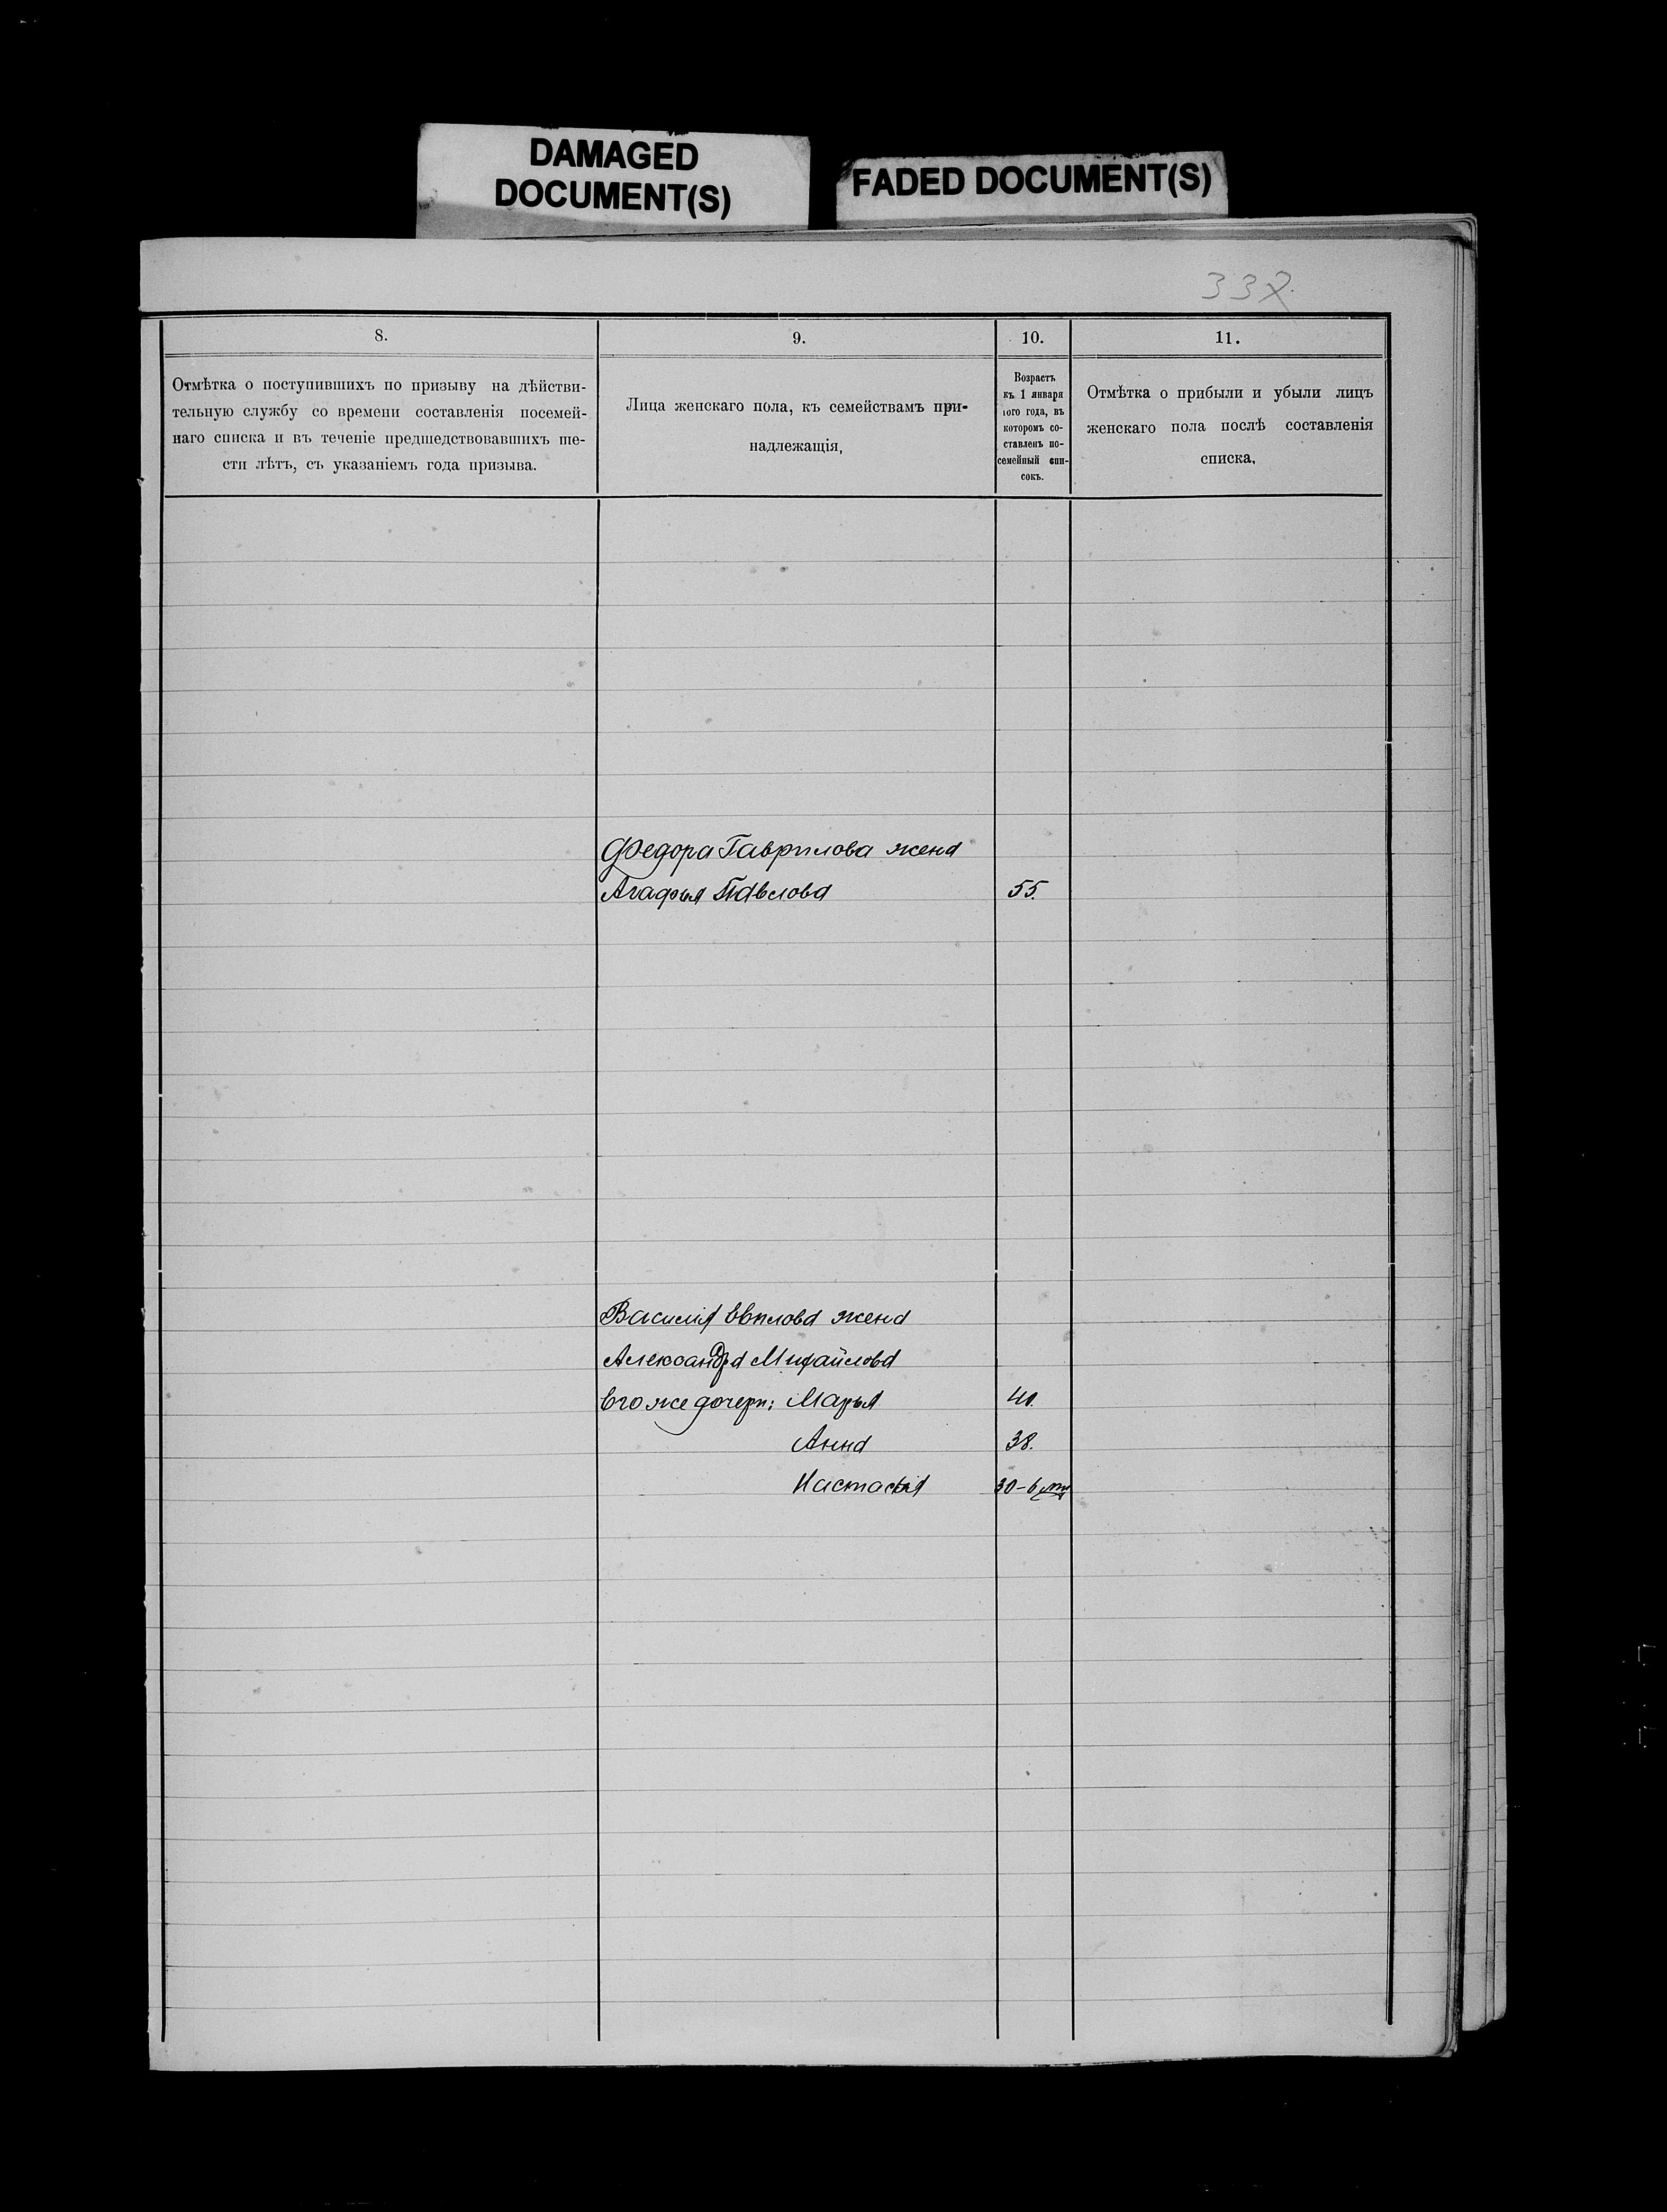 DAMAGED
DOCUMENT(S)
FADED DOCUMENT(S)
337.
8.
9.
10.
11.
Отмѣтка о поступившихъ по призыву на дѣйстви-
тельную службу со времени составленія посемей-
наго списка и въ теченіе предшедствовавшихъ ше-
сти лѣтъ, съ указаніемъ года призыва.
Лица женскаго пола, къ семействамъ при-
надлежащія,
Возрастъ
къ 1 января
того года, въ
которомъ со-
ставленъ по-
семейный спи-
сокъ.
Отмѣтка о прибыли и убыли лицъ
женскаго пола послѣ составленія
списка,
Федора Гаврилова жена
Агафья Павлова 55.
Василія жена
Александра Михайлова
Его же дочери: Марья 40.
Анна 38.
Настасья 30-6